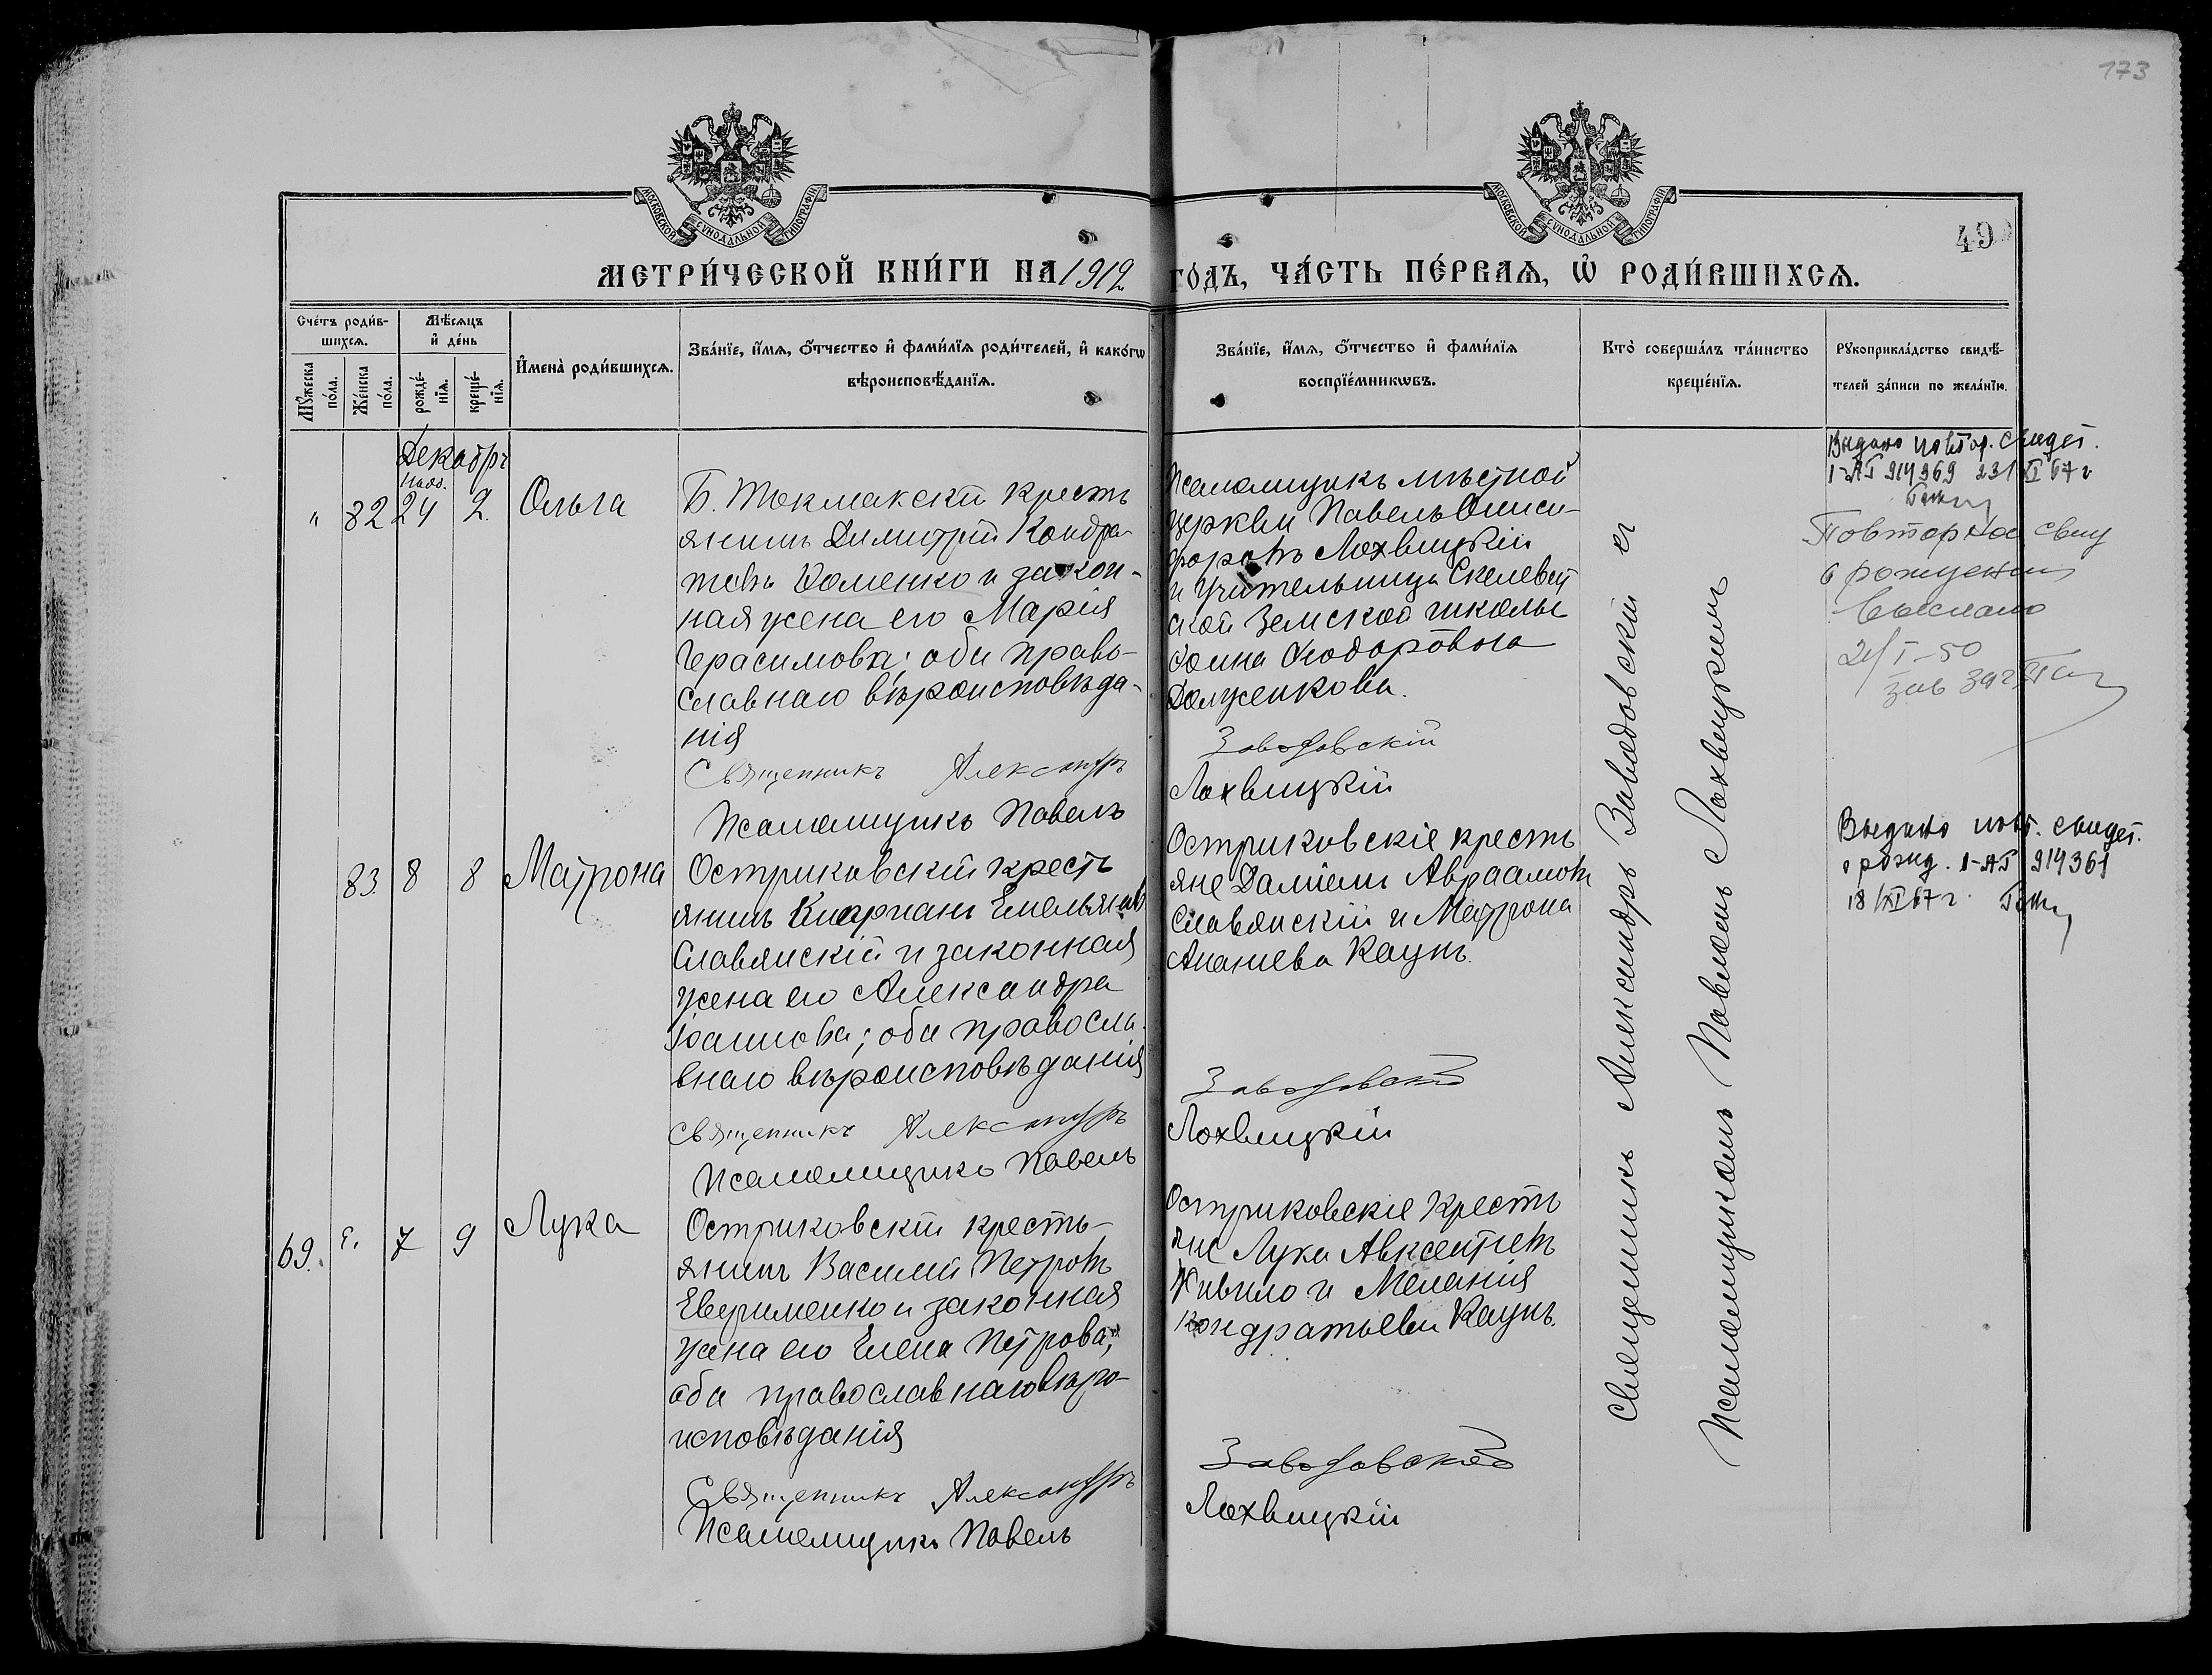 173
МОСКОВСКОЙ СѴНОДАЛЬНОЙ ТИПОГРАФІИ
МОСКОВСКОЙ СѴНОДАЛЬНОЙ ТИПОГРАФІИ
49
МЕТРИ́ЧЕСКОЙ КНИ́ГИ НА 1912 ГО́ДЪ, ЧА́СТЬ ПЕ́РВАѦ, Ѡ҆ РОДИ́ВШИХСѦ.
Сче́тъ роди́в-
шихсѧ.
Мꙋ́жеска по́ла.
Же́нска по́ла.
Мѣ́сѧцъ
и҆ де́нь
рожде́-
нїѧ.
креще́-
нїѧ.
И҆мена̀ роди́вшихсѧ.
Зва́нїе, и҆́мѧ, ѻ҆́тчество и҆ фами́лїѧ роди́телей, и҆ како́гѡ
вѣроисповѣ́данїѧ.
Зва́нїе, и҆́мѧ, ѻ҆́тчество и҆ фами́лїѧ
воспрїе́мникѡвъ.
Кто̀ соверша́лъ та́инство
креще́нїѧ.
Рꙋкоприкла́дство свидѣ́-
телей за́писи по жела́нїю.
Декабрь
Нояб.
" 82 24 2. Ольга
Б. Токмакскій кресть
янинъ Димитрій Кондра-
товъ Коменко и закон-
ная жена его Марія
Герасимова; оба право-
славнаго вѣроисповѣда-
нія
Священникъ Александръ
Псаломщикъ Павелъ
Псаломщикъ мѣстной
церкви ПавелъОниси-
форовъ Лохвицкій
и учительница Скелеват
ской Земской школы
Ѳеодоровна
Долженкова.
Заводовскій
Лохвицкій
Выдано повтор. свидет.
1-АТ 914369 XI 67 г
Повторное свид
о рождении
выслано
21/I-50
зав заг
83 8 8 Матрона
Остриковскій кресть
янинъ Кипріанъ Емельяновъ
Славянскій и законная
жена его Александра
Іоаннова; оба правосла-
внаго вѣроисповѣданія
Священникъ Александръ
Псаломщикъ Павелъ
Остриковскіе кресть
яне Даніилъ Авраамовъ
Славянскій и Матрона
Ананіева Каунъ.
Заводовскій
Лохвицкій
Выдано повт. свидет.
о рожд. 1-АТ 914361
18/XI 67 г.
69. " 7 9 Лука
Остриковскій кресть-
янинъ Василій Петровъ
Евфименко и законная
жена его Елена Петрова;
оба православнаго вѣро-
исповѣданія
Священникъ Александръ
Псаломщикъ Павелъ
Остриковскіе кресть
яне Лука Авксентіевъ
Живило и Меланія
Кондратьева Каунъ.
Заводовскій
Лохвицкій
Священникъ Александръ Заводовскій съ
Псаломщикомъ Павломъ Лохвицкимъ